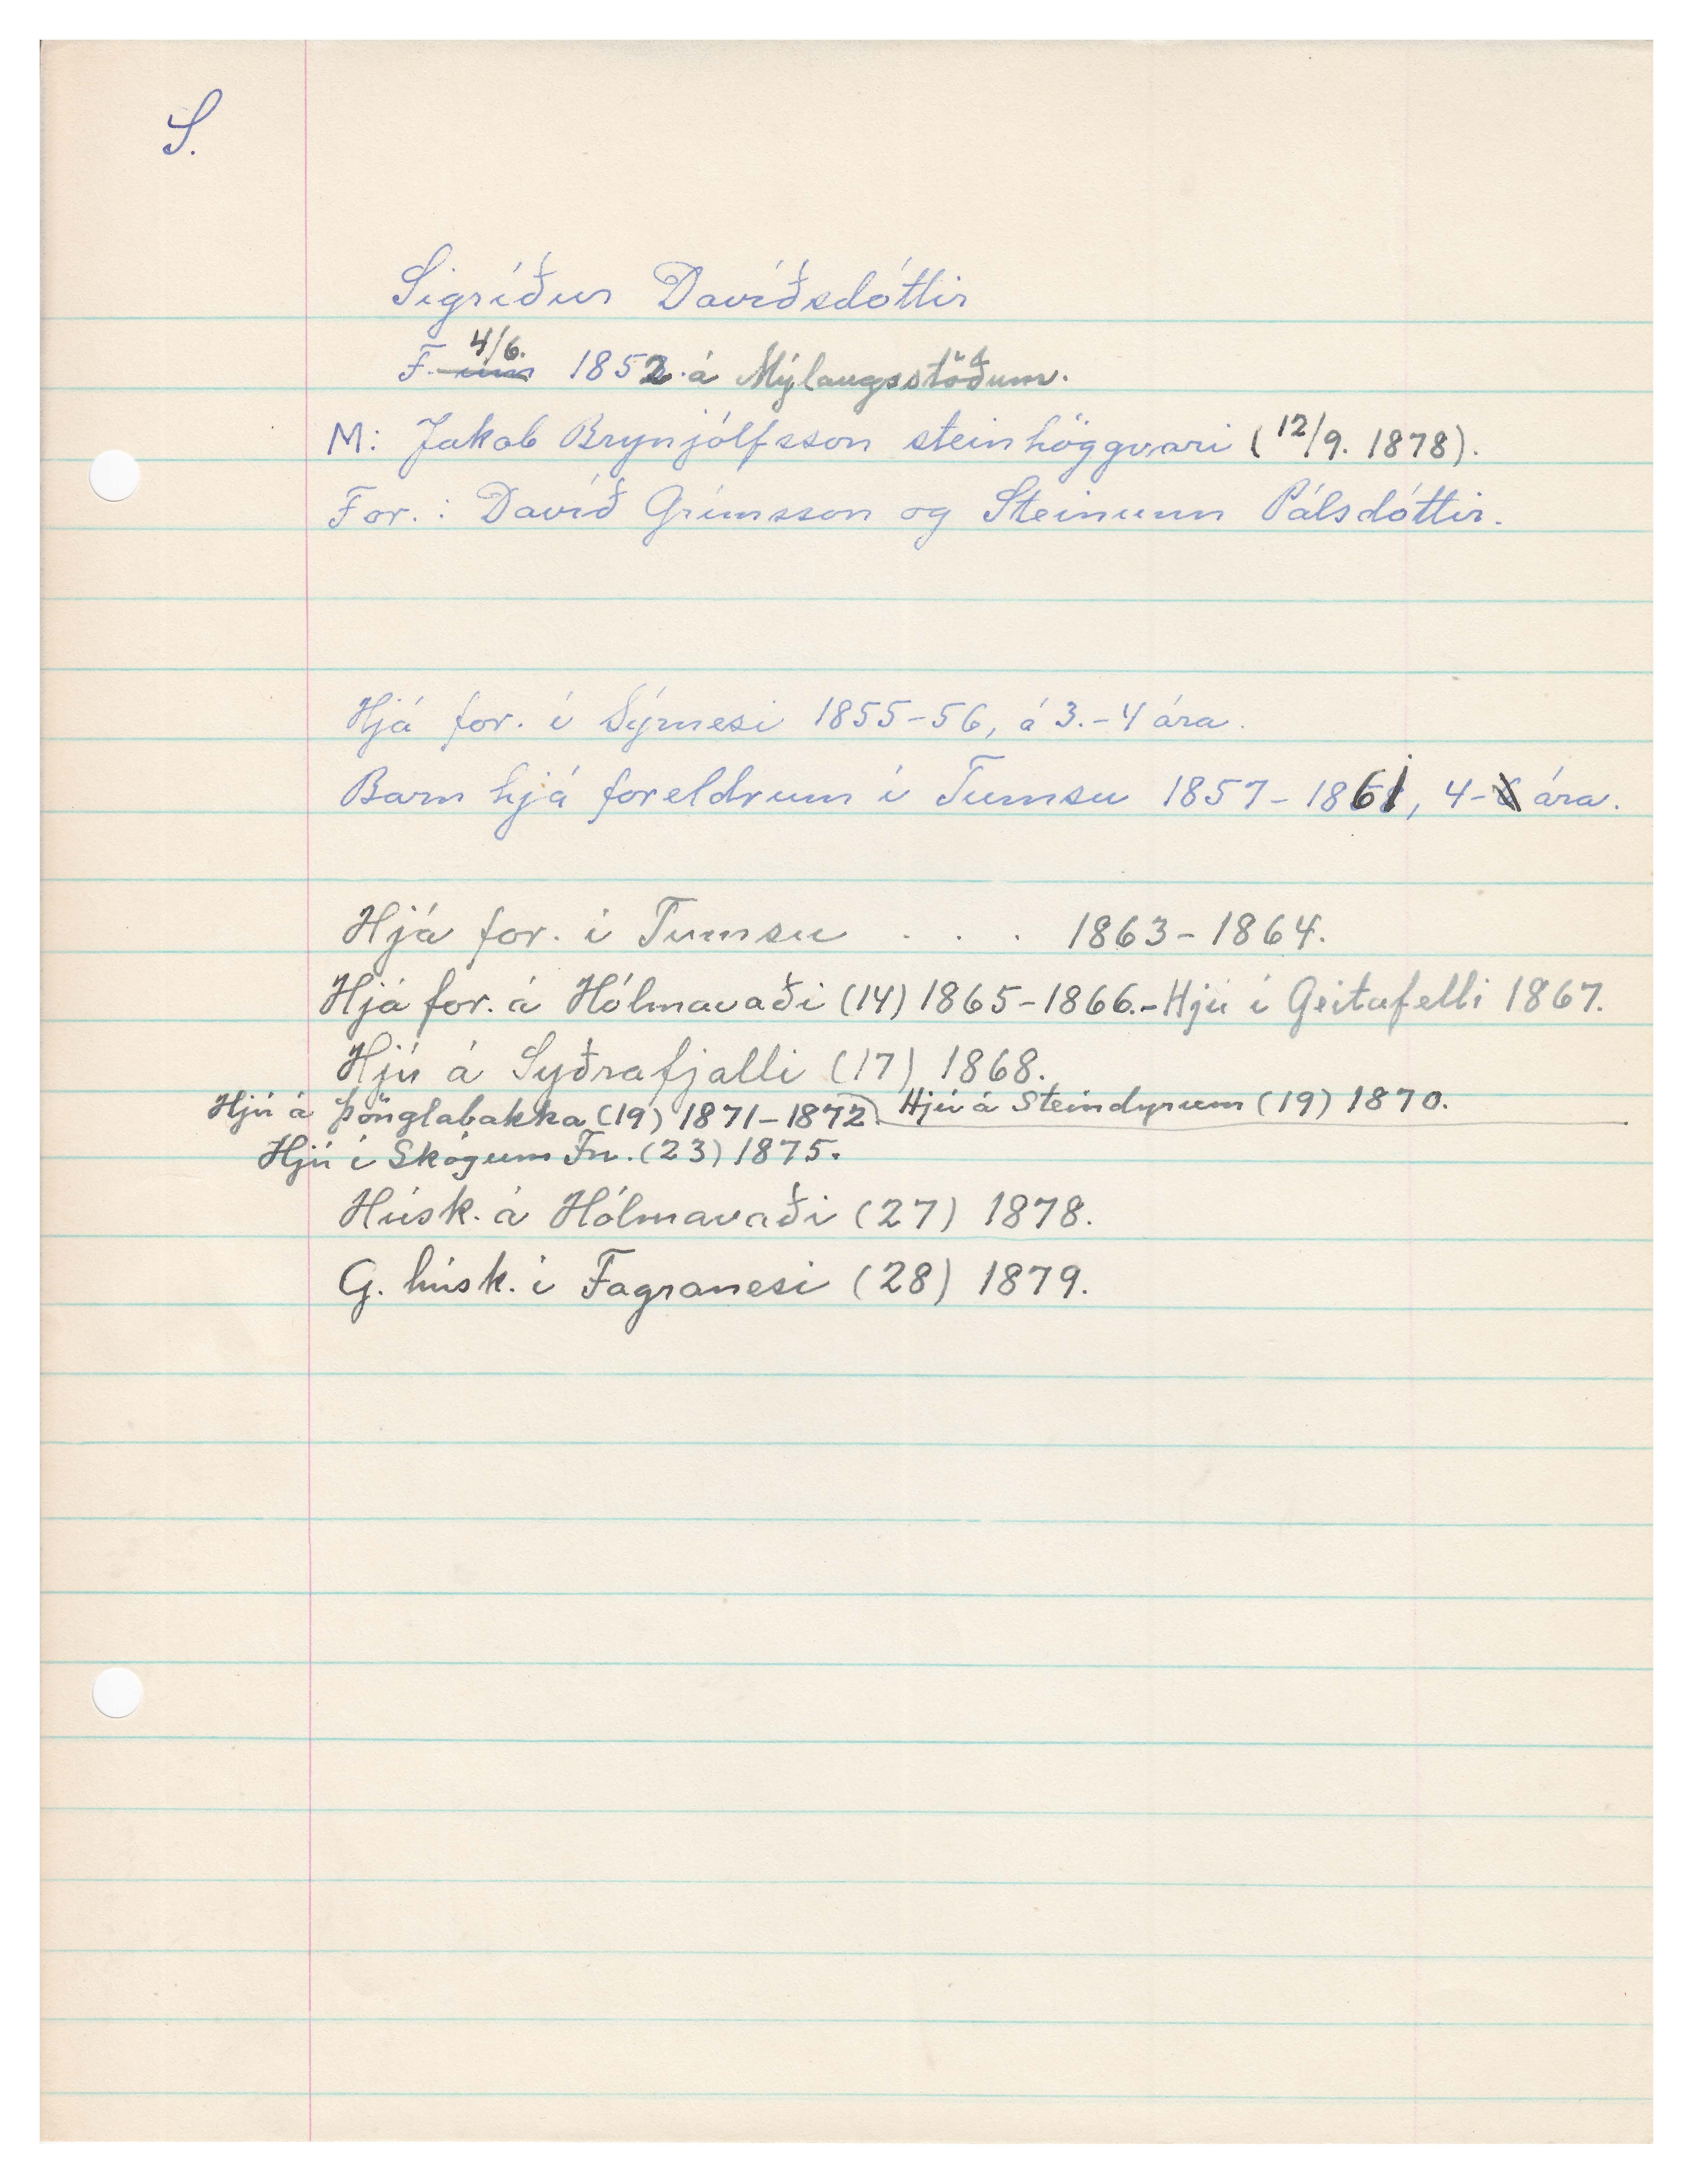 S.
Sigríður Davíðsdóttir
F. 4/6. 1852 á Mýlaugsstöðum.
M: Jakob Brynjólfsson steinhöggvari (12/9. 1878).
For.: Davíð Grímsson og Steinunn Pálsdóttir.
Hjá for. í Sýrnesi 1855-56, á 3.-4 ára.
Barn hjá foreldrum í Tumsu 1857-1861, 4- ára.
Hjá for. í Tumsu . . . 1863-1864.
Hjá for. á Hólmavaði (14) 1865-1866.- Hjú í Geitafelli 1867.
Hjú á Syðrafjalli (17) 1868.
Hjú á Steindyrum (19) 1870.
Hjú á Þönglabakka (19) 1871-1872.
Hjú í Skógum Fn. (23) 1875.
Húsk. á Hólmavaði (27) 1878.
G. húsk. í Fagranesi (28) 1879.